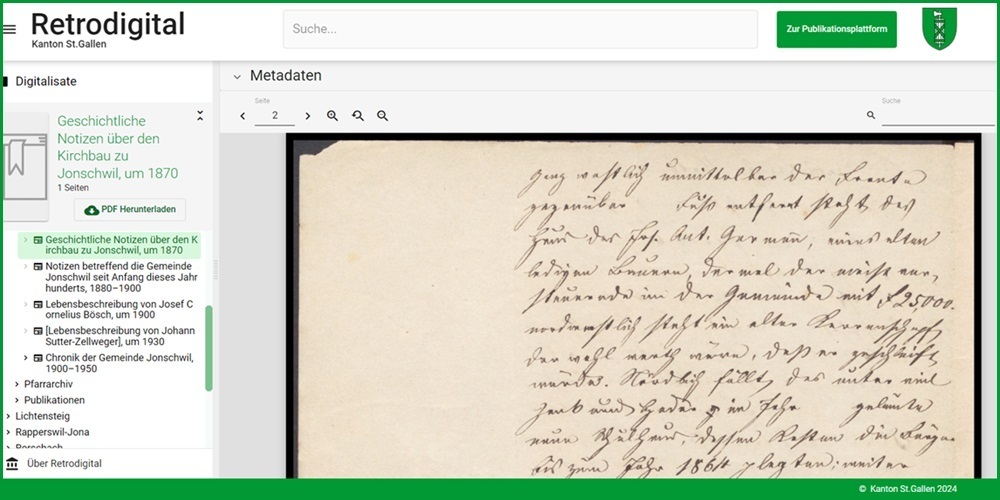 Retrodigital
Kanton St.Gallen
Suche...
Zur Publikationsplattform
Digitalisate
Geschichtliche
Notizen über den
Kirchbau zu
Jonschwil, um 1870
1 Seiten
PDF Herunterladen
Geschichtliche Notizen über den K
irchbau zu Jonschwil, um 1870
Notizen betreffend die Gemeinde
Jonschwil seit Anfang dieses Jahr
hunderts, 1880–1900
Lebensbeschreibung von Josef C
ornelius Bösch, um 1900
[Lebensbeschreibung von Johann
Sutter-Zellweger], um 1930
Chronik der Gemeinde Jonschwil,
1900–1950
Pfarrarchiv
Publikationen
Lichtensteig
Rapperswil-Jona
Rorschach
Über Retrodigital
Metadaten
Seite
2
Suche
ganz westlich unmittelbar der Fronte
gegenüber Fuß entfernt steht das
Haus des Jos. Ant. German, eines alten
ledigen Bauern, dermal der meist ver-
steuernde in der Gemeinde mit f 25,000.
nordwestlich steht ein alter
der wohl werth wäre, daß er geschleift
würde. Nördlich fällt das unter viel
Zank und Hader im Jahr gebaute
neue Schulhaus, dessen Kosten die Bürger
bis zum Jahr 1864 ; weiter
© Kanton St.Gallen 2024